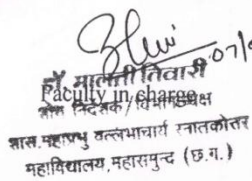 07/
डॉ मालती तिवारी
Faculty in charge
शोध निर्देशक/विभागाध्यक्ष
शास.महाप्रभु वल्लभाचार्य स्नातकोत्तर
महाविद्यालय,महासमुन्द (छ.ग.)